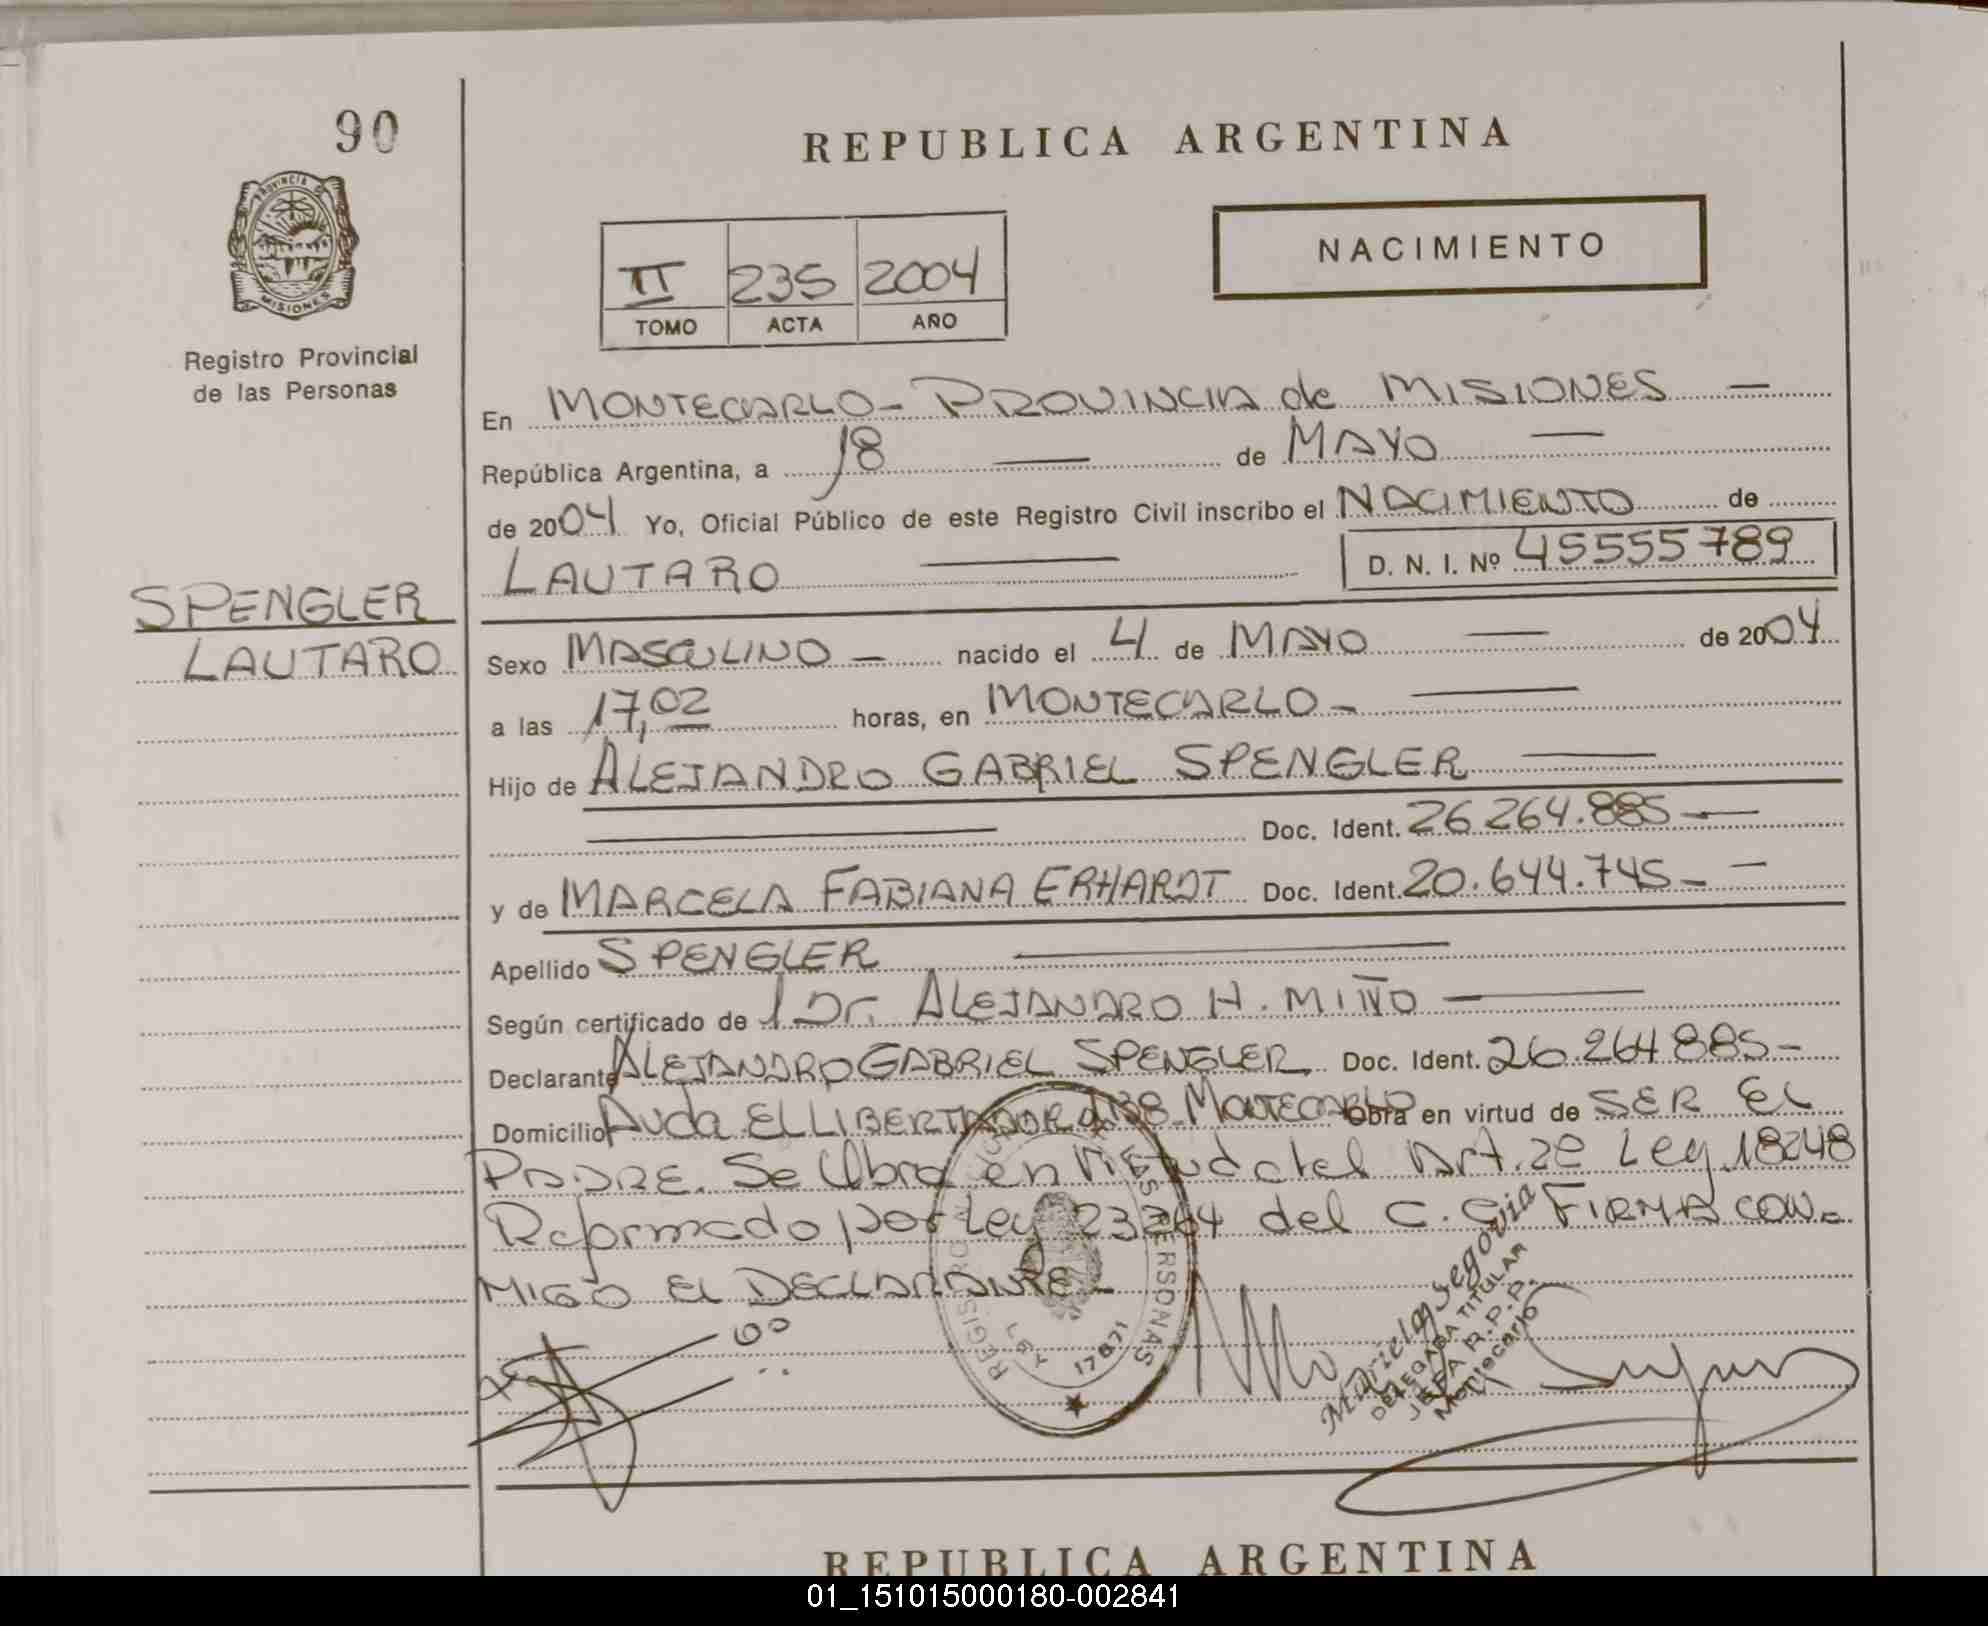 90
PROVINCIA DE
MISIONES
Registro Provincial
de las Personas
SPENGLER
LAUTARO
REPUBLICA ARGENTINA
NACIMIENTO
II 235 2004
TOMO ACTA AÑO
En MONTECARLO - PROVINCIA de MISIONES —
República Argentina, a 18 — de MAYO —
de 2004 Yo, Oficial Público de este Registro Civil inscribo el NACIMIENTO de
LAUTARO — D. N. I. Nº 45555789
Sexo MASCULINO — nacido el 4 de MAYO — de 2004
a las 17,02 horas, en MONTECARLO - —
Hijo de ALEJANDRO GABRIEL SPENGLER —
— Doc. Ident. 26.264.885 —
y de MARCELA FABIANA ERHARDT Doc. Ident. 20.644.745 - —
Apellido SPENGLER —
Según certificado de l Dr. ALEJANDRO H. MIÑO —
Declarante ALEJANDRO GABRIEL SPENGLER Doc. Ident. 26.264.885 -
Domicilio Avda EL LIBERTADOR MONTECARLO Obra en virtud de SER EL
PADRE. Se Obra en Virtud del Art. 2º Ley 18248
Reformado por Ley 23264 del C. C. FIRMA CON-
MIGO EL DECLARANTE -
REGISTRO PERSONAS
17671
Mariela Segovia
DELEGADA TITULAR
JEFA R.P.P.
Montecarlo
REPUBLICA ARGENTINA
01_151015000180-002841